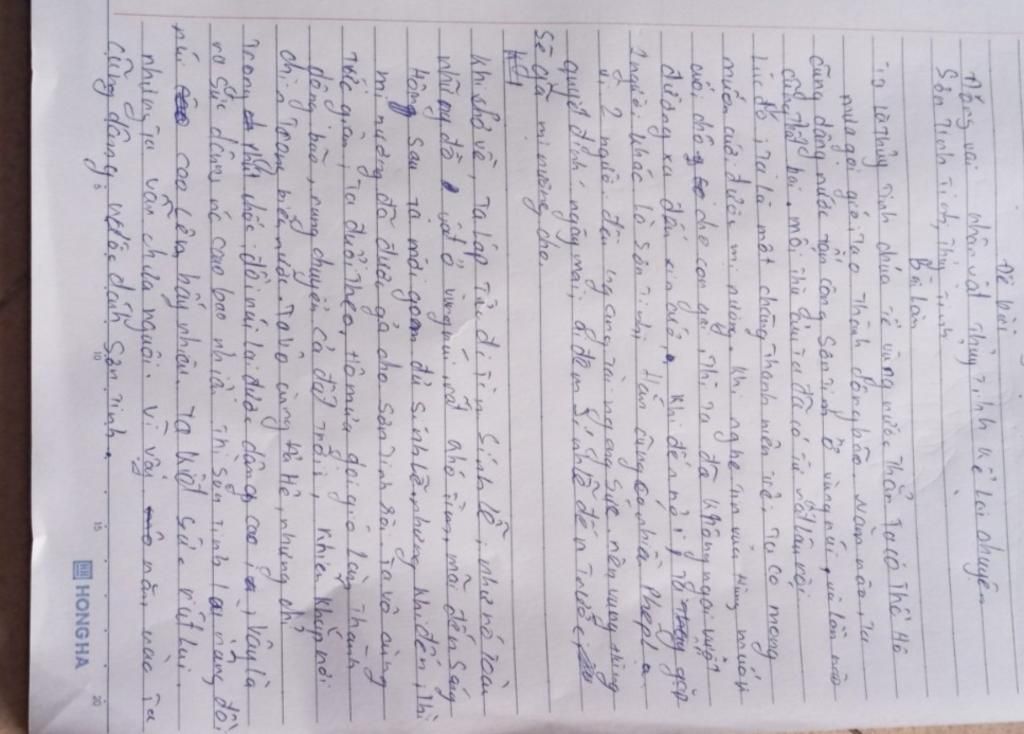 Đề bài
Đóng vai nhân vật thủy tinh kể lại chuyện
Sơn Tinh Tinh, Thủy Tinh
Bài làm
ta là thủy Tinh chúa tể vùng nước thẳm. Ta có thể hô
mưa gọi gió, tạo thành dông bão. Năm nào, ta
cũng dâng nước tấn công Sơn Tinh ở vùng núi, và lần nào
cũng thất bại. mối thù của ta đã có từ rất lâu rồi.
Lúc đó, ta là một chàng thanh niên trẻ, ta có mong
muốn cưới được mị nương. khi nghe tin vua Hùng muốn
chồng cho con gái, thì ta đã không ngại vượt
đường xa đến xin cưới. Khi đến nơi, ta gặp
1 người khác là sơn tinh. Hắn cũng có nhiều Phép lạ
vì 2 người đều ngang tài ngang sức nên vua Hùng
quyết định: ngày mai, ai đem sính lễ đến trước,
sẽ gả mị nương cho.
Khi trở về, ta lập tức đi tìm sính lễ, như nó toàn
những đồ vật ở vùng núi, rất khó tìm, mãi đến sáng
Hôm sau ta mới gom đủ sính lễ, nhưng khi đến, thì
mị nương đã được gả cho sơn tinh rồi. Ta vô cùng
tức giận, ta đuổi theo, hô mưa gọi gió làm thành
dông bão, rung chuyển cả đất trời, khiến khắp nơi
chìm trong biển nước. Ta vô cùng hả Hê, nhưng chỉ
trong phút chốc, đồi núi lại được dâng cao, vậy là
ra sức dâng nước cao bao nhiêu thì sơn tinh lại nâng đồi
núi cao lên bấy nhiêu. Ta kiệt sức rút lui.
nhưng ta vẫn chưa nguôi. vì vậy năm nào ta
cũng dâng nước đánh Sơn Tinh.
HONG HA
10
15
20